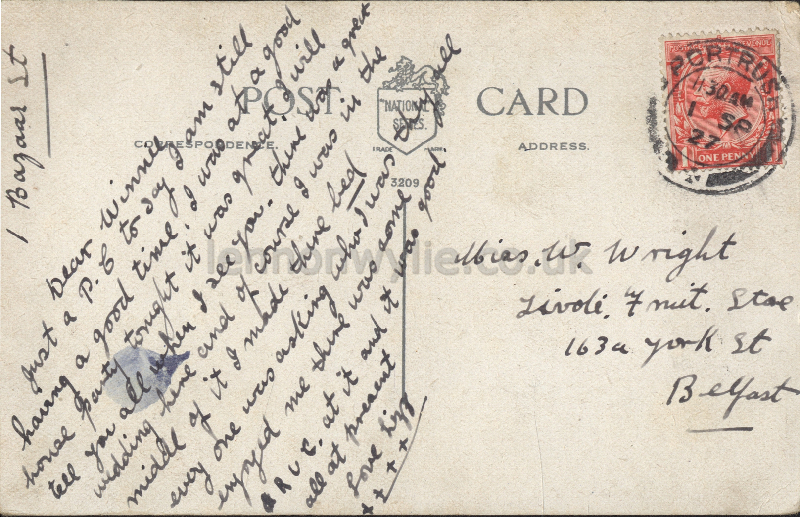 POST CARD
NATIONAL
SERIES.
TRADE MARK.
CORRESPONDENCE.
ADDRESS.
3209
PORTRUSH
11 30 AM
1 SP
27
ONE PENNY
1 Bazaar St
Dear Winnie
Just a P.C to day I am still
having a good time, I was at a good
house party tonight it was great, I will
tell you all when I see you. there was a great
wedding here and of course I was in the
middle of it I made there bed
every one was asking who I was they all
enjoyed me there was some
R U C. at it and it was good
all at present
Love Lizz
x x x x
Miss. W. Wright
Tivoli. Fruit. Store
163a York St
Belfast
lennonwylie.co.uk